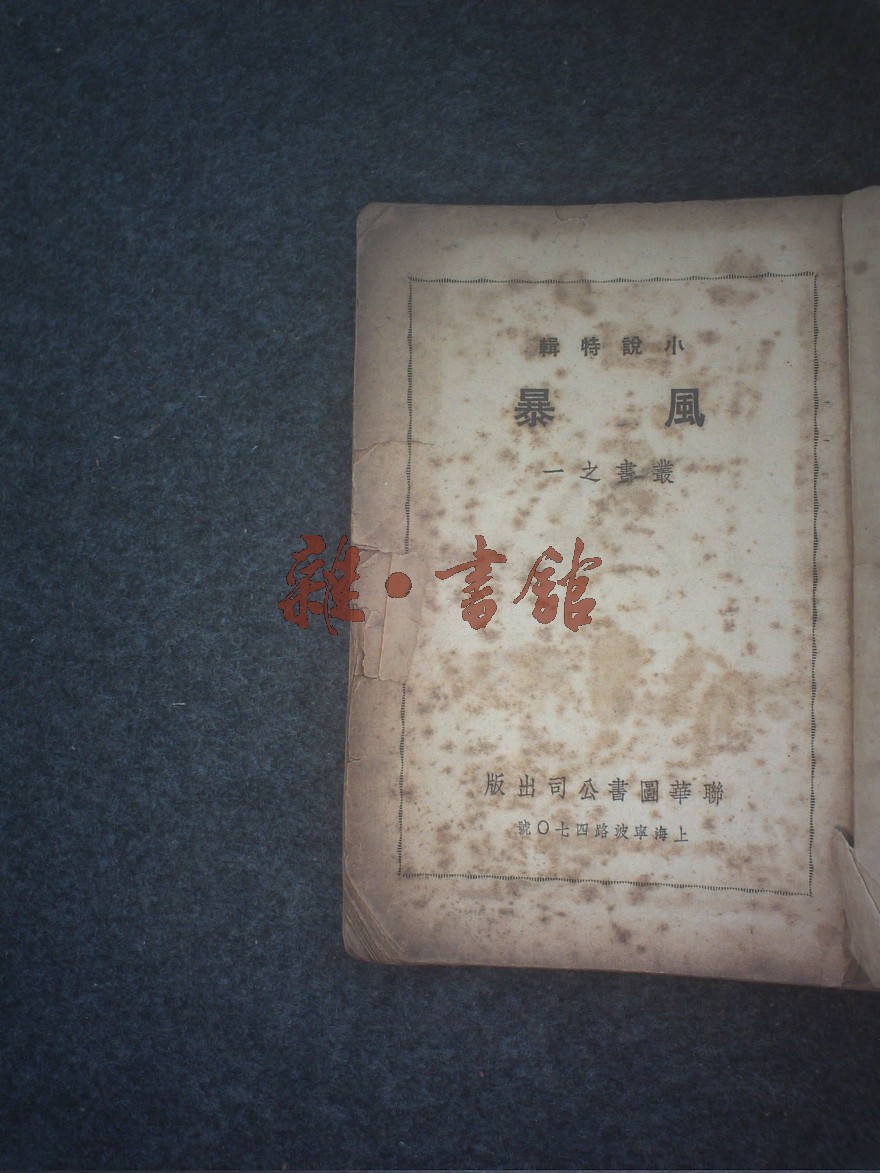 小說特輯
風暴
叢書之一
雜·書館
聯華圖書公司出版
上海寧波路四七〇號